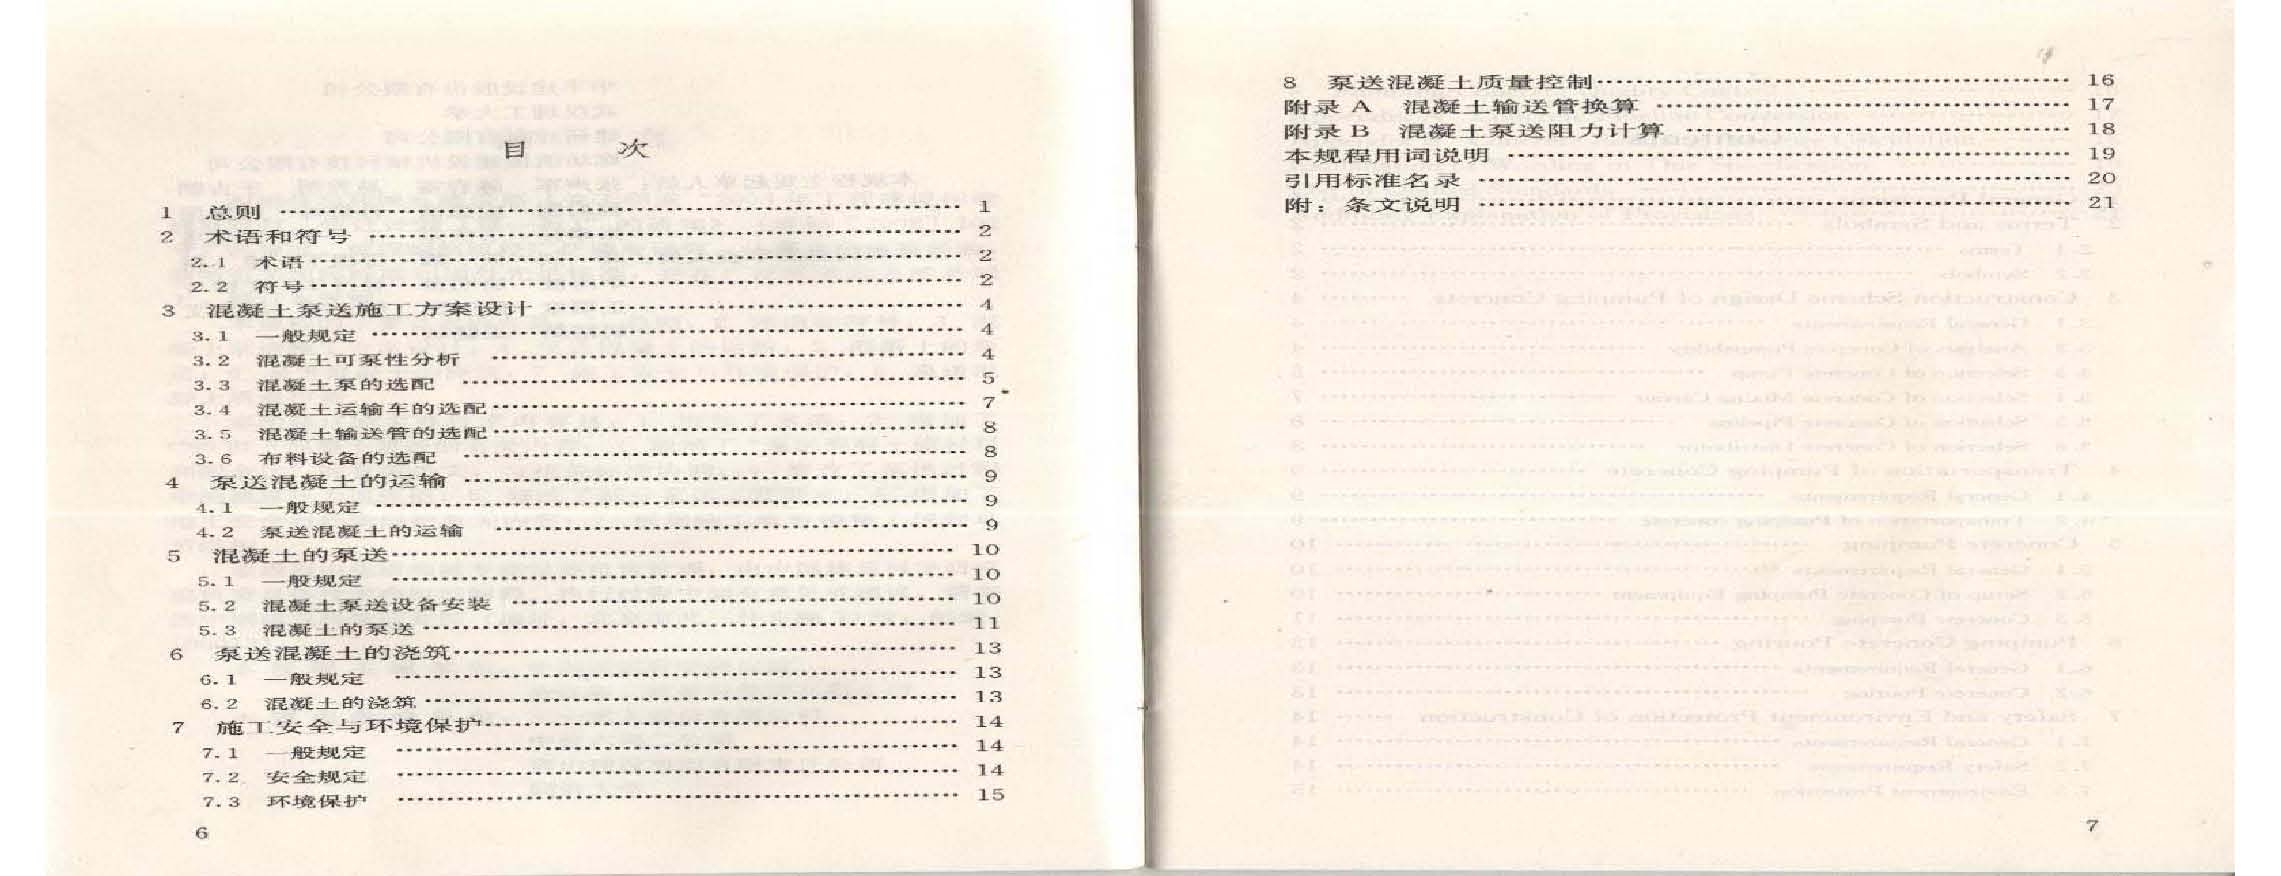 目 次
1 总则 …… 1
2 术语和符号 …… 2
2.1 术语 …… 2
2.2 符号 …… 2
3 混凝土泵送施工方案设计 …… 4
3.1 一般规定 …… 4
3.2 混凝土可泵性分析 …… 4
3.3 混凝土泵的选配 …… 5
3.4 混凝土运输车的选配 …… 7
3.5 混凝土输送管的选配 …… 8
3.6 布料设备的选配 …… 8
4 泵送混凝土的运输 …… 9
4.1 一般规定 …… 9
4.2 泵送混凝土的运输 …… 9
5 混凝土的泵送 …… 10
5.1 一般规定 …… 10
5.2 混凝土泵送设备安装 …… 10
5.3 混凝土的泵送 …… 11
6 泵送混凝土的浇筑 …… 13
6.1 一般规定 …… 13
6.2 混凝土的浇筑 …… 13
7 施工安全与环境保护 …… 14
7.1 一般规定 …… 14
7.2 安全规定 …… 14
7.3 环境保护 …… 15
6
8 泵送混凝土质量控制 …… 16
附录 A 混凝土输送管换算 …… 17
附录 B 混凝土泵送阻力计算 …… 18
本规程用词说明 …… 19
引用标准名录 …… 20
附：条文说明 …… 21
7